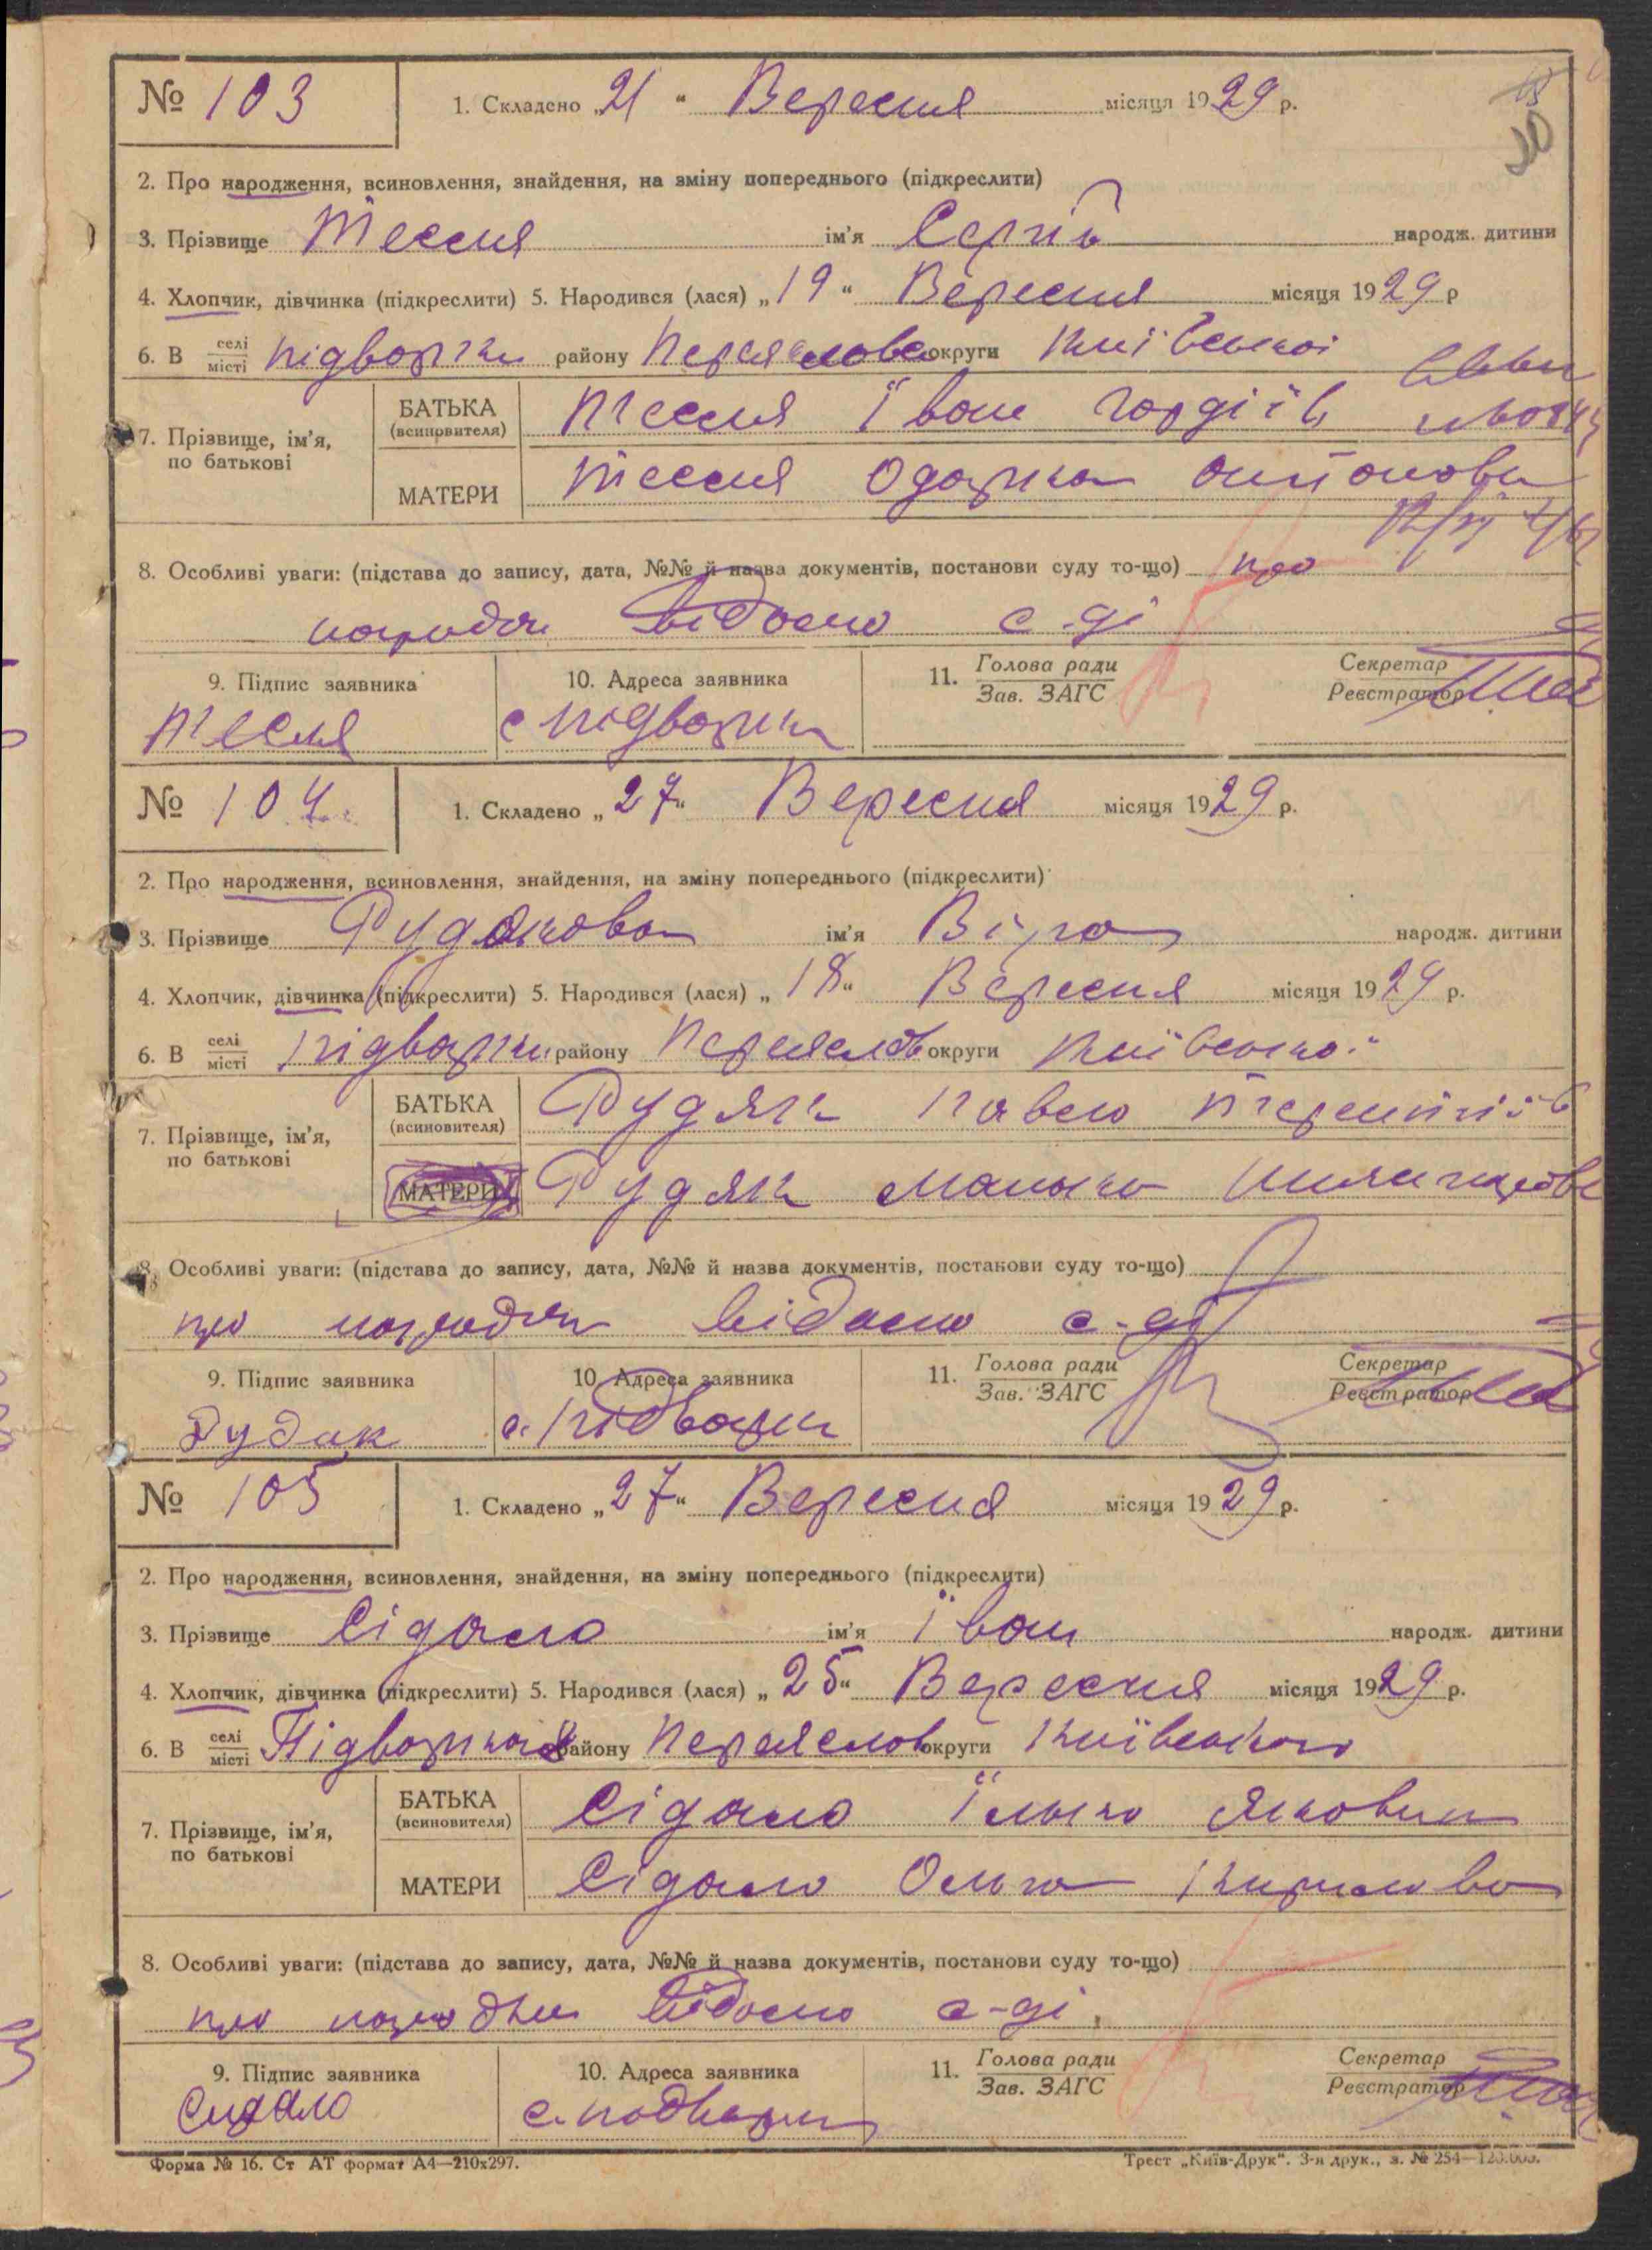 № 103 1. Складено „21“ Вересня місяця 1929 р.
30
2. Про народження, всиновлення, знайдення, на зміну попереднього (підкреслити)
3. Прізвище Тесля ім'я Сергій народж. дитини
4. Хлопчик, дівчинка (підкреслити) 5. Народився (лася) „19“ Вересня місяця 1929 р
6. В селі/місті Підворки району Переяслове округи Київської
7. Прізвище, ім'я, по батькові
БАТЬКА (всиновителя) Тесля Іван Гордіїв
МАТЕРИ Тесля Одарка Антонова
8. Особливі уваги: (підстава до запису, дата, №№ й назва документів, постанови суду то-що) про
народж видано с-ді
9. Підпис заявника 10. Адреса заявника 11. Голова ради/Зав. ЗАГС Секретар/Реєстратор
Тесля с Підворки
№ 104 1. Складено „27“ Вересня місяця 1929 р.
2. Про народження, всиновлення, знайдення, на зміну попереднього (підкреслити)
3. Прізвище Рудякова ім'я Віра народж. дитини
4. Хлопчик, дівчинка (підкреслити) 5. Народився (лася) „18“ Вересня місяця 1929 р.
6. В селі/місті Підварки району Переяслов округи Київської
7. Прізвище, ім'я, по батькові
БАТЬКА (всиновителя) Рудяк Павло Терентіїв
МАТЕРИ Рудяк
8. Особливі уваги: (підстава до запису, дата, №№ й назва документів, постанови суду то-що)
про народж видано с-ді
9. Підпис заявника 10. Адреса заявника 11. Голова ради/Зав. ЗАГС Секретар/Реєстратор
Рудак с. Підварки
№ 105 1. Складено „27“ Вересня місяця 1929 р.
2. Про народження, всиновлення, знайдення, на зміну попереднього (підкреслити)
3. Прізвище Сідало ім'я Іван народж. дитини
4. Хлопчик, дівчинка (підкреслити) 5. Народився (лася) „25“ Вересня місяця 1929 р.
6. В селі/місті Підворках району Переяслов округи Київського
7. Прізвище, ім'я, по батькові
БАТЬКА (всиновителя) Сідало Ілько Якович
МАТЕРИ Сідало Ольга Кирилова
8. Особливі уваги: (підстава до запису, дата, №№ й назва документів, постанови суду то-що)
про народжен видано с-ді
9. Підпис заявника 10. Адреса заявника 11. Голова ради/Зав. ЗАГС Секретар/Реєстратор
Сидало с. подварки
Форма № 16. Ст АТ формат А4—210x297. Трест „Київ-Друк“. 3-я друк., з. № 254—120.000.